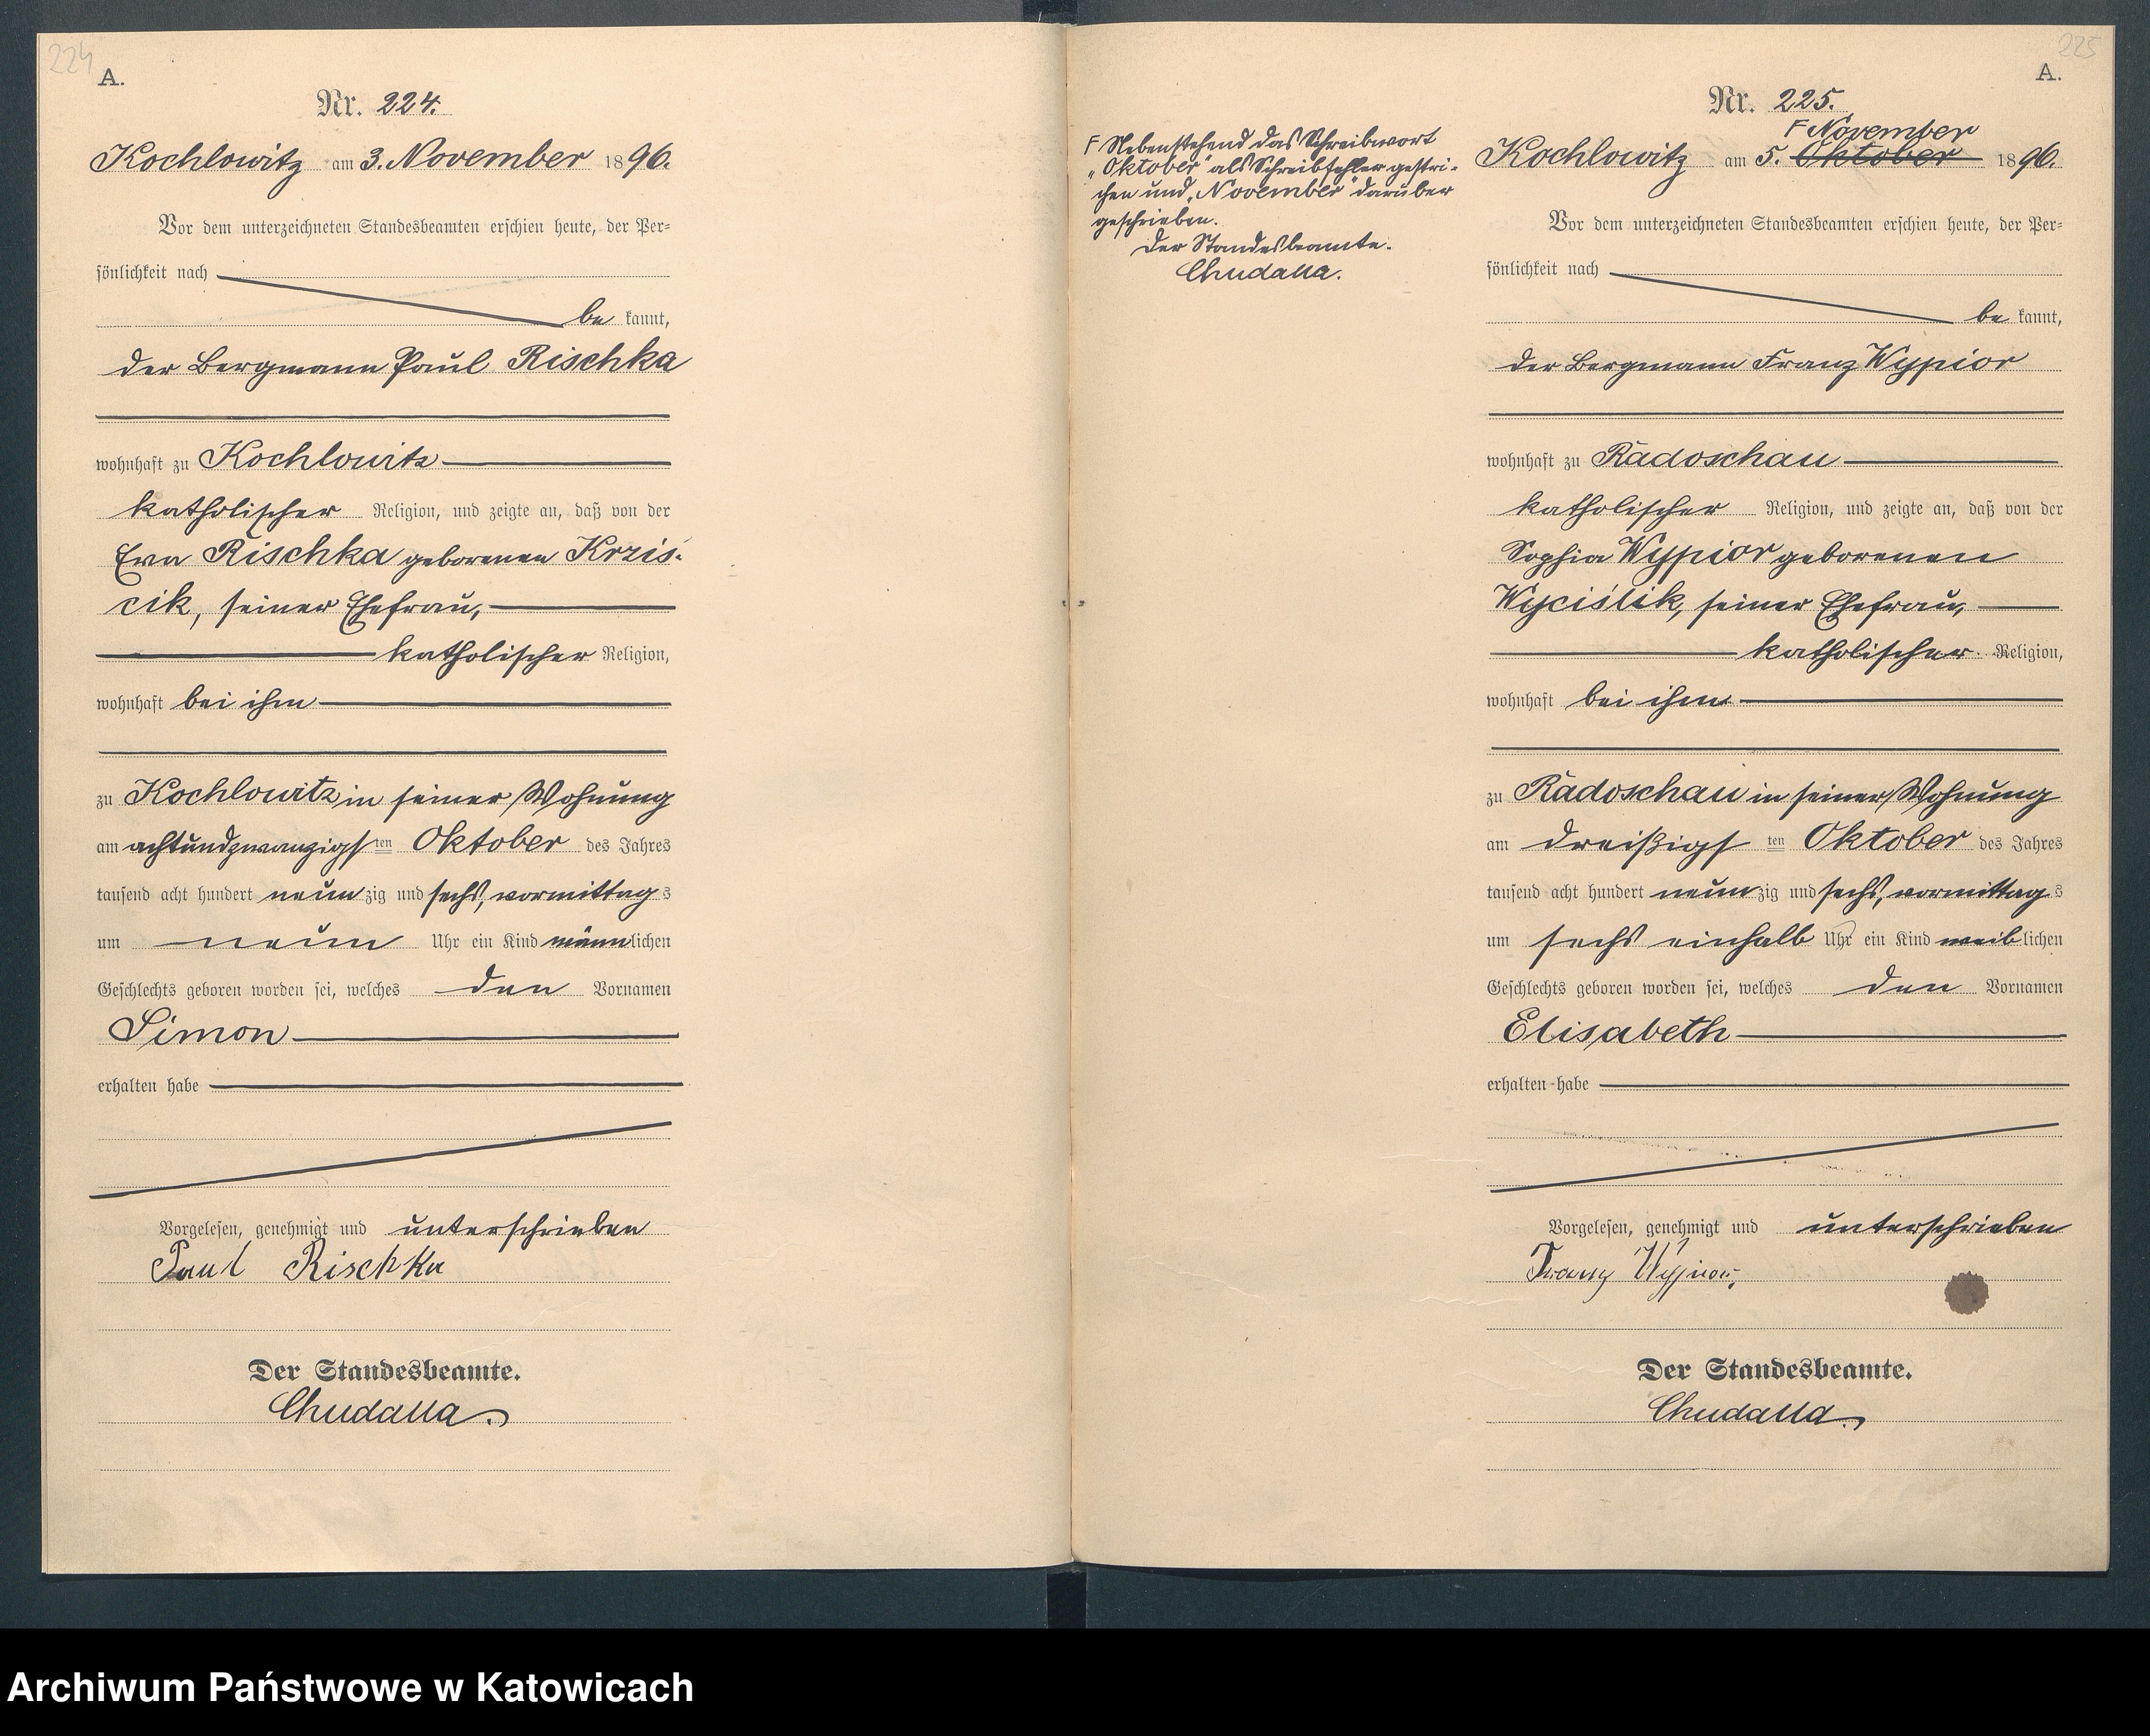 224
A.
Nr. 224.
Kochlowitz am 3. November 1896.
Vor dem unterzeichneten Standesbeamten erschien heute, der Per-
sönlichkeit nach
be kannt,
der Bergmann Paul Rischka
wohnhaft zu Kochlowitz
katholischer Religion, und zeigte an, daß von der
Eva Rischka geborenen Krzis-
cik, seiner Ehefrau,
katholischer Religion,
wohnhaft bei ihm
zu Kochlowitz in seiner Wohnung
am achtundzwanzigsten Oktober des Jahres
tausend acht hundert neunzig und sechs, vormittags
um neun Uhr ein Kind männlichen
Geschlechts geboren worden sei, welches den Vornamen
Simon
erhalten habe
Vorgelesen, genehmigt und unterschrieben
Paul Rischka
Der Standesbeamte.
Chudalla.
225
A.
Nr. 225.
F November
Kochlowitz am 5. Oktober 1896.
F Nebenstehend das Schreibwort
„Oktober" als Schreibfehler gestri-
chen und „November" darüber
geschrieben.
Der Standesbeamte.
Chudalla.
Vor dem unterzeichneten Standesbeamten erschien heute, der Per-
sönlichkeit nach
be kannt,
der Bergmann Franz Wypior
wohnhaft zu Radoschau
katholischer Religion, und zeigte an, daß von der
Sophia Wypior geborenen
Wyciślik, seiner Ehefrau,
katholischer Religion,
wohnhaft bei ihm
zu Radoschau in seiner Wohnung
am dreißigsten Oktober des Jahres
tausend acht hundert neunzig und sechs, vormittags
um sechs einhalb Uhr ein Kind weiblichen
Geschlechts geboren worden sei, welches den Vornamen
Elisabeth
erhalten habe
Vorgelesen, genehmigt und unterschrieben
Franz Wypior
Der Standesbeamte.
Chudalla.
Archiwum Państwowe w Katowicach